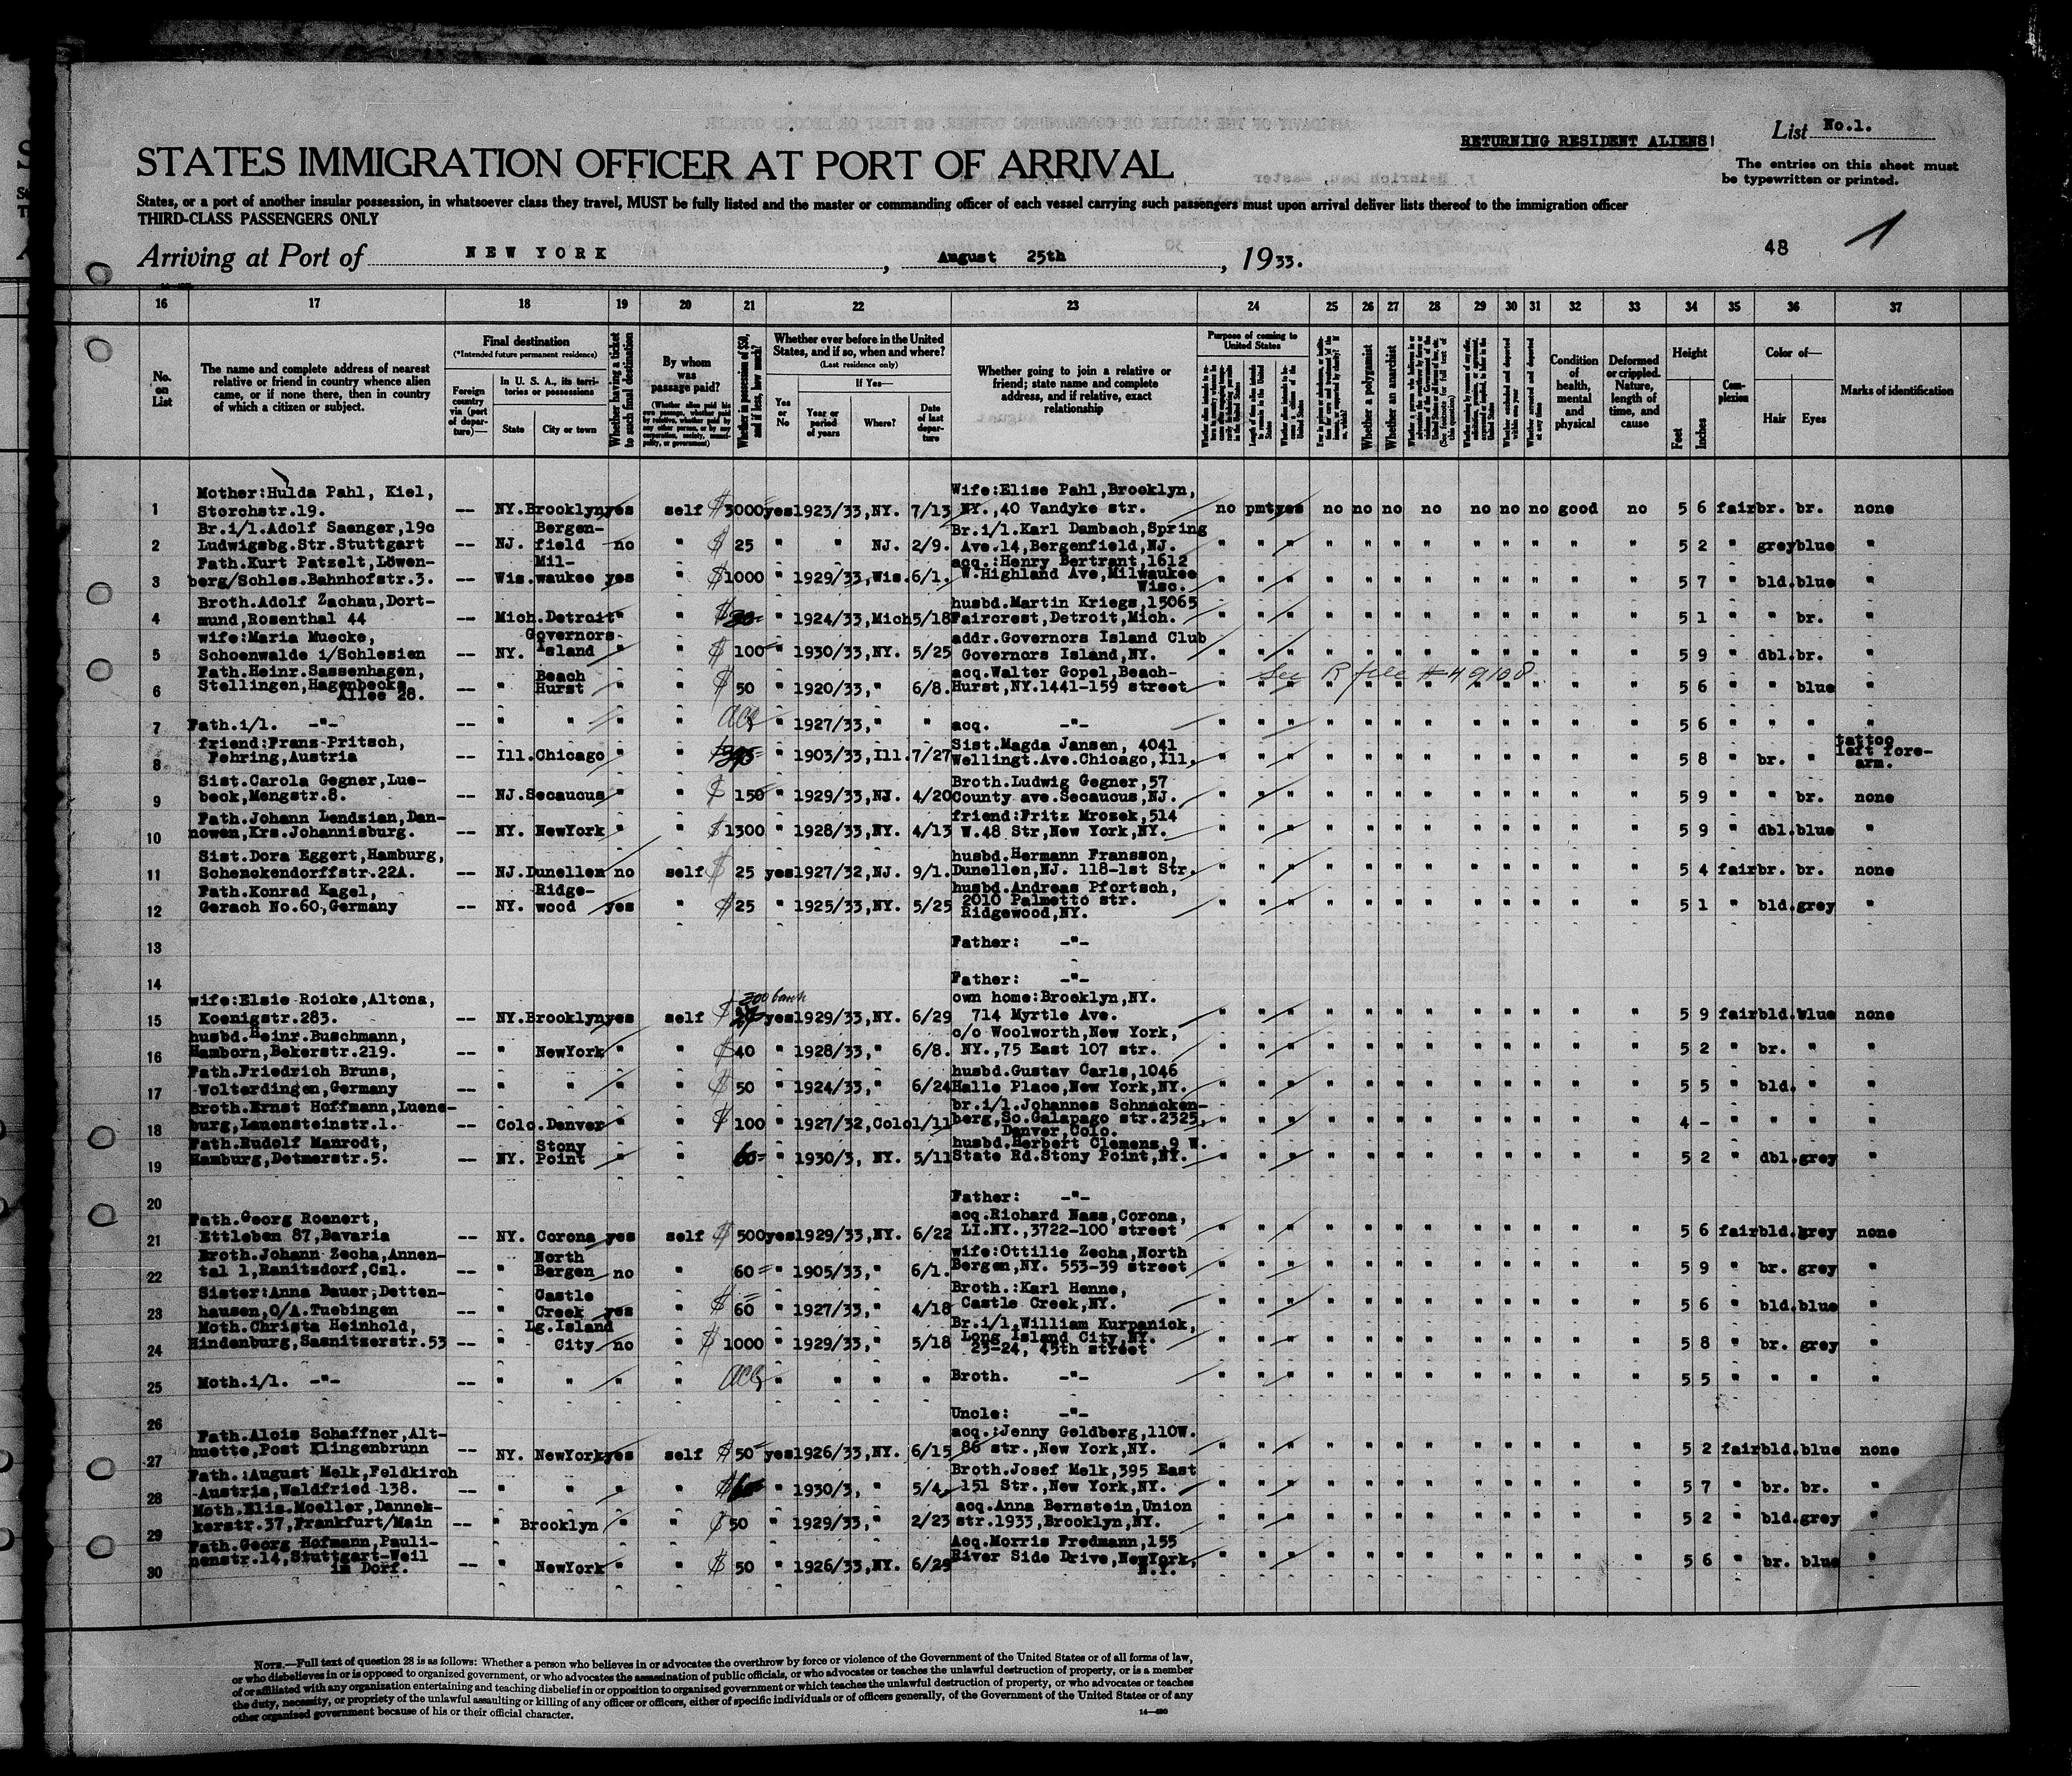 RETURNING RESIDENT ALIENS!
List No.1.
STATES IMMIGRATION OFFICER AT PORT OF ARRIVAL
The entries on this sheet must
be typewritten or printed.
States, or a port of another insular possession, in whatsoever class they travel, MUST be fully listed and the master or commanding officer of each vessel carrying such passengers must upon arrival deliver lists thereof to the immigration officer
THIRD-CLASS PASSENGERS ONLY
48 1
Arriving at Port of NEW YORK, August 25th, 1933.
16 17 18 19 20 21 22 23 24 25 26 27 28 29 30 31 32 33 34 35 36 37
No. on List
The name and complete address of nearest relative or friend in country whence alien came, or if none there, then in country of which a citizen or subject.
Final destination
(*Intended future permanent residence)
Foreign country via (port of departure)—
In U. S. A., its territories or possessions
State City or town
Whether having a ticket to such final destination
By whom was passage paid?
Whether in possession of $50, and if less, how much?
Whether ever before in the United States, and if so, when and where?
(Last residence only)
If Yes—
Yes or No
Year or period of years
Where?
Date of last departure
Whether going to join a relative or friend; state name and complete address, and if relative, exact relationship
Purpose of coming to United States
Whether a polygamist
Whether an anarchist
Condition of health, mental and physical
Deformed or crippled. Nature, length of time, and cause
Height
Feet Inches
Complexion
Color of—
Hair Eyes
Marks of identification
Mother:Hulda Pahl, Kiel, Wife:Elise Pahl,Brooklyn,
1 Storchstr.19. -- NY.Brooklyn yes self $ 3000 yes 1923/33,NY. 7/13 NY.,40 Vandyke str. no pmt yes no no no no no no no good no 5 6 fair br. br. none
Br.i/l.Adolf Saenger,19c Bergen- Br.i/l.Karl Dambach,Spring
2 Ludwigsbg.Str.Stuttgart -- NJ. field no " $ 25 " " NJ. 2/9. Ave.14,Bergenfield,NJ. 5 2 " grey blue "
Fath.Kurt Patzelt,Löwen- Mil- acq.:Henry Bertrant,1612
3 berg/Schles.Bahnhofstr.3. -- Wis.waukee yes " $1000 " 1929/33,Wis.6/1. W.Highland Ave,Milwaukee Wisc. 5 7 " bld.blue "
Broth.Adolf Zachau,Dort- husbd.Martin Kriegs,15065
4 mund,Rosenthal 44 -- Mich.Detroit " " " 1924/33,Mich 5/18 Faircrest,Detroit,Mich. 5 1 " " br. "
wife:Maria Muecke, Governors addr.Governors Island Club
5 Schoenwalde i/Schlesien -- NY. Island " " $ 100 " 1930/33,NY. 5/25 Governors Island,NY. 5 9 " dbl.br. "
Fath.Heinr.Sassenhagen, Beach acq.Walter Gopel,Beach- See R file #49108
6 Stellingen,Hagenbecks Allee 28. -- " Hurst " " $ 50 " 1920/33," 6/8. Hurst,NY.1441-159 street 5 6 " " blue "
7 Fath.i/l. -"- -- " " " " acc " 1927/33," " acq. -"- 5 6 " " " "
friend:Franz Pritsch, Sist.Magda Jansen, 4041 tattoo
8 Fehring,Austria -- Ill.Chicago " " " 1903/33,Ill.7/27 Wellingt.Ave.Chicago,Ill. 5 8 " br. " left fore-arm.
Sist.Carola Gegner,Lue- Broth.Ludwig Gegner,57
9 beck,Mengstr.8. -- NJ.Secaucus " " $ 150 " 1929/33,NJ. 4/20 County ave.Secaucus,NJ. 5 9 " " br. none
Fath.Johann Lendzian,Dan- friend:Fritz Mrozek,514
10 nowen,Krs.Johannisburg. -- NY. NewYork " " $1300 " 1928/33,NY. 4/13 W.48 Str,New York,NY. 5 9 " dbl.blue "
Sist.Dora Eggert,Hamburg, husbd.Hermann Fransson,
11 Schenckendorffstr.22A. -- NJ.Dunellen no self $ 25 yes 1927/32,NJ. 9/1. Dunellen,NJ. 118-1st Str. 5 4 fair br. br. none
Fath.Konrad Kagel, Ridge- husbd.Andreas Pfortsch,
12 Gerach No.60,Germany -- NY. wood yes " $25 " 1925/33,NY. 5/25 2010 Palmetto str. Ridgewood,NY. 5 1 " bld.grey "
13 Father: -"-
14 Father: -"-
wife:Elsie Roicke,Altona, 300 bank own home:Brooklyn,NY.
15 Koenigstr.283. -- NY.Brooklyn yes self $ yes 1929/33,NY. 6/29 714 Myrtle Ave. 5 9 fair bld.blue none
husbd.Heinr.Buschmann, c/o Woolworth,New York,
16 Hamborn,Bekerstr.219. -- " NewYork " " $40 " 1928/33," 6/8. NY.,75 East 107 str. 5 2 " br. " "
Fath.Friedrich Bruns, husbd.Gustav Carls,1046
17 Wolterdingen,Germany -- " " " " $ 50 " 1924/33," 6/24 Halle Place,New York,NY. 5 5 " bld. " "
Broth.Ernst Hoffmann,Luene- br.i/l.Johannes Schnacken-
18 burg,Lauensteinstr.1. -- Colo.Denver " " $ 100 " 1927/32,Colo 1/11 berg,So.Galapago str.2325, Denver,Colo. 4 - " " " "
Fath.Rudolf Manrodt, Stony husbd.Herbert Clemens,9 W.
19 Hamburg,Detmerstr.5. -- NY. Point " " 60 " 1930/3, NY. 5/11 State Rd.Stony Point,NY. 5 2 " dbl.grey "
20 Father: -"-
Fath.Georg Roenert, acq.Richard Nass,Corona,
21 Ettleben 87,Bavaria -- NY. Corona yes self $ 500 yes 1929/33,NY. 6/22 LI.NY.,3722-100 street 5 6 fair bld.grey none
Broth.Johann Zecha,Annen- North wife:Ottilie Zecha,North
22 tal 1,Ranitzdorf,Csl. -- " Bergen no 60 " 1905/33," 6/1. Bergen,NY. 553-39 street 5 9 " br. grey "
Sister:Anna Bauer,Detten- Castle Broth.:Karl Henne,
23 hausen,O/A.Tuebingen -- " Creek yes " $ 60 " 1927/33," 4/18 Castle Creek,NY. 5 6 " bld.blue "
Moth.Christa Heinhold, Lg.Island Br.i/l.William Kurpanick,
24 Hindenburg,Sasnitzerstr.53 -- " City no " $ 1000 " 1929/33," 5/18 Long Island City,NY. 23-24, 45th street 5 8 " br. grey "
25 Moth.i/l. -"- -- " " " " acc " " " " Broth. -"- 5 5 " " " "
26 Uncle: -"-
Fath.Alois Schaffner,Alt- acq.:Jenny Goldberg,110W.
27 huette,Post Klingenbrunn -- NY. NewYork yes self $ 50 yes 1926/33,NY. 6/15 86 str.,New York,NY. 5 2 fair bld.blue none
Fath.:August Melk,Feldkirch Broth.Josef Melk,395 East
28 Austria,Waldfried 138. -- " " " " " 1930/3, " 5/4. 151 Str.,New York,NY. 5 7 " br. br. "
Moth.Elis.Moeller,Dannek- acq.Anna Bernstein,Union
29 kerstr.37,Frankfurt/Main -- " Brooklyn " " $50 " 1929/33," 2/23 str.1933,Brooklyn,NY. 5 2 " bld.grey "
Fath.Georg Hofmann,Pauli- Acq.Morris Fredmann,155
30 nenstr.14,Stuttgart-Weil im Dorf. -- " NewYork " " $ 50 " 1926/33,NY. 6/29 River Side Drive,NewYork, N.Y. 5 6 " br. blue "
NOTE.—Full text of question 28 is as follows: Whether a person who believes in or advocates the overthrow by force or violence of the Government of the United States or of all forms of law,
or who disbelieves in or is opposed to organized government, or who advocates the assassination of public officials, or who advocates or teaches the unlawful destruction of property, or is a member
of or affiliated with any organization entertaining and teaching disbelief in or opposition to organized government or which teaches the unlawful destruction of property, or who advocates or teaches
the duty, necessity, or propriety of the unlawful assaulting or killing of any officer or officers, either of specific individuals or of officers generally, of the Government of the United States or of any
other organized government because of his or their official character.
14—480